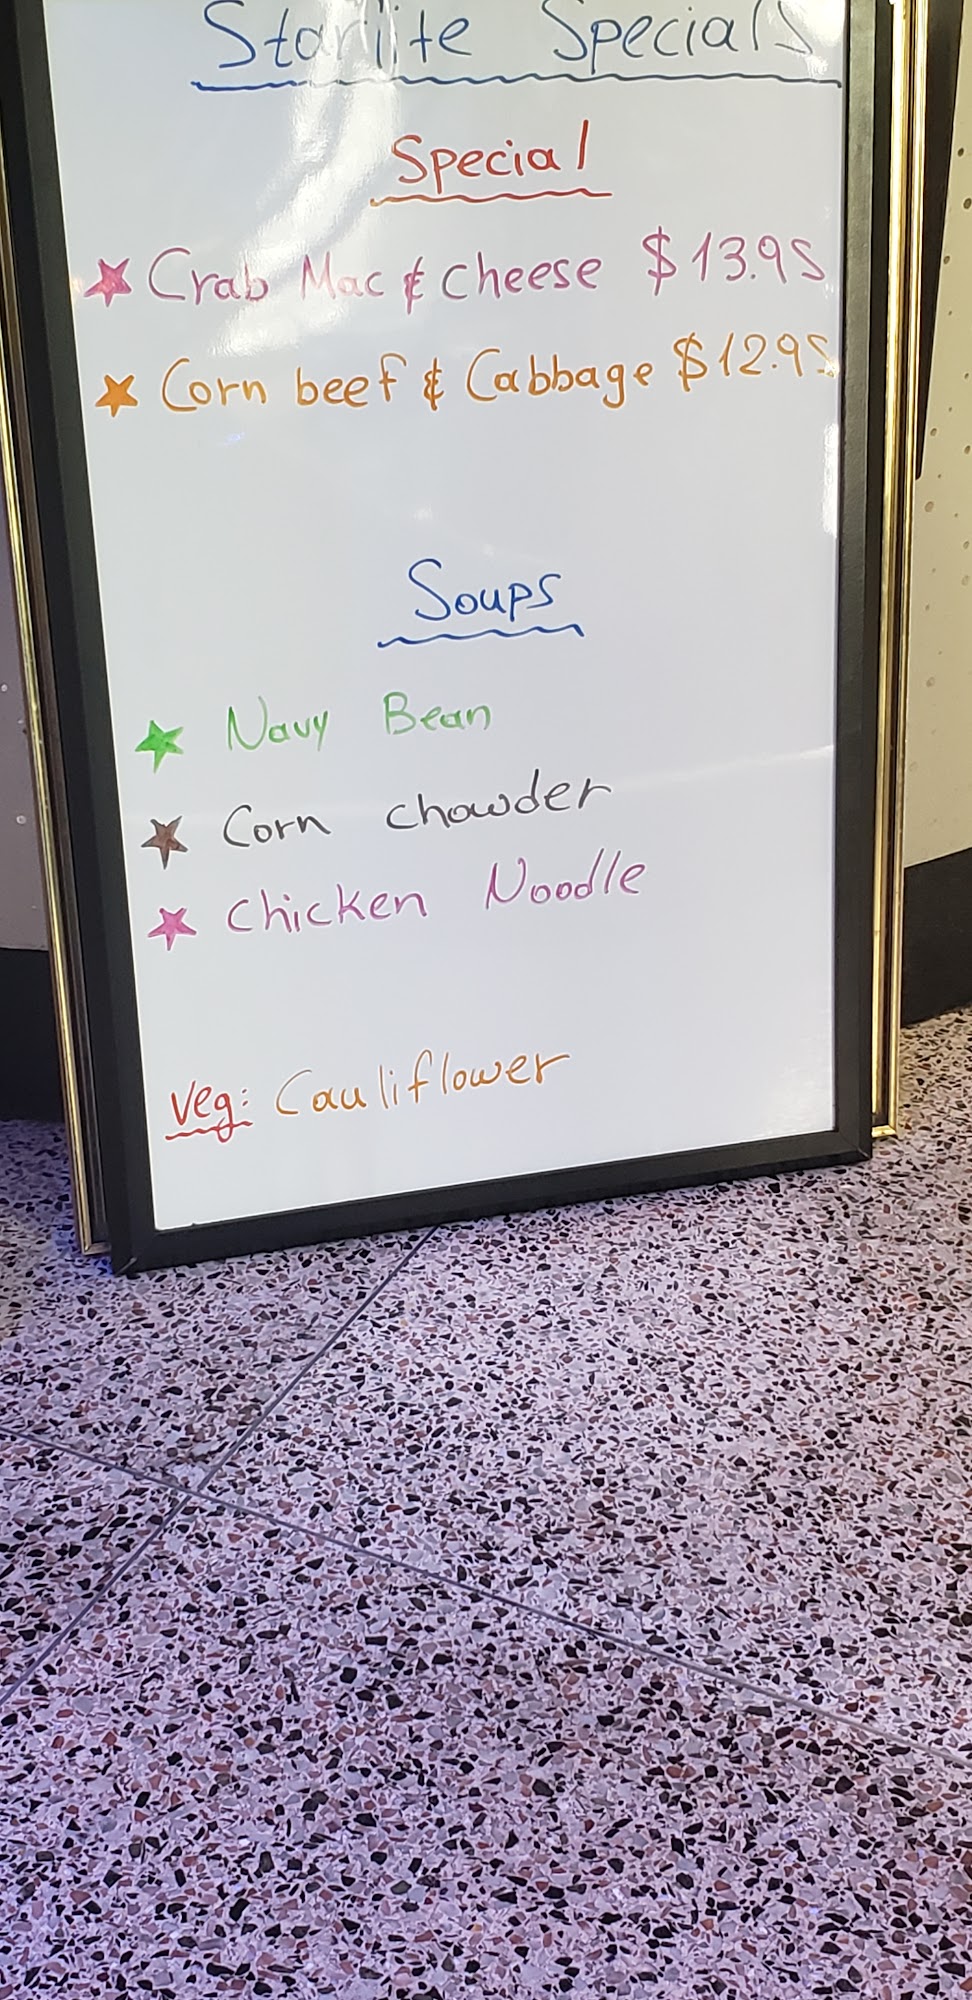 Starlite Specials
Special
Crab Mac & cheese $13.95
Corn beef & Cabbage $12.95
Soups
Navy Bean
Corn chowder
Chicken Noodle
Veg: Cauliflower